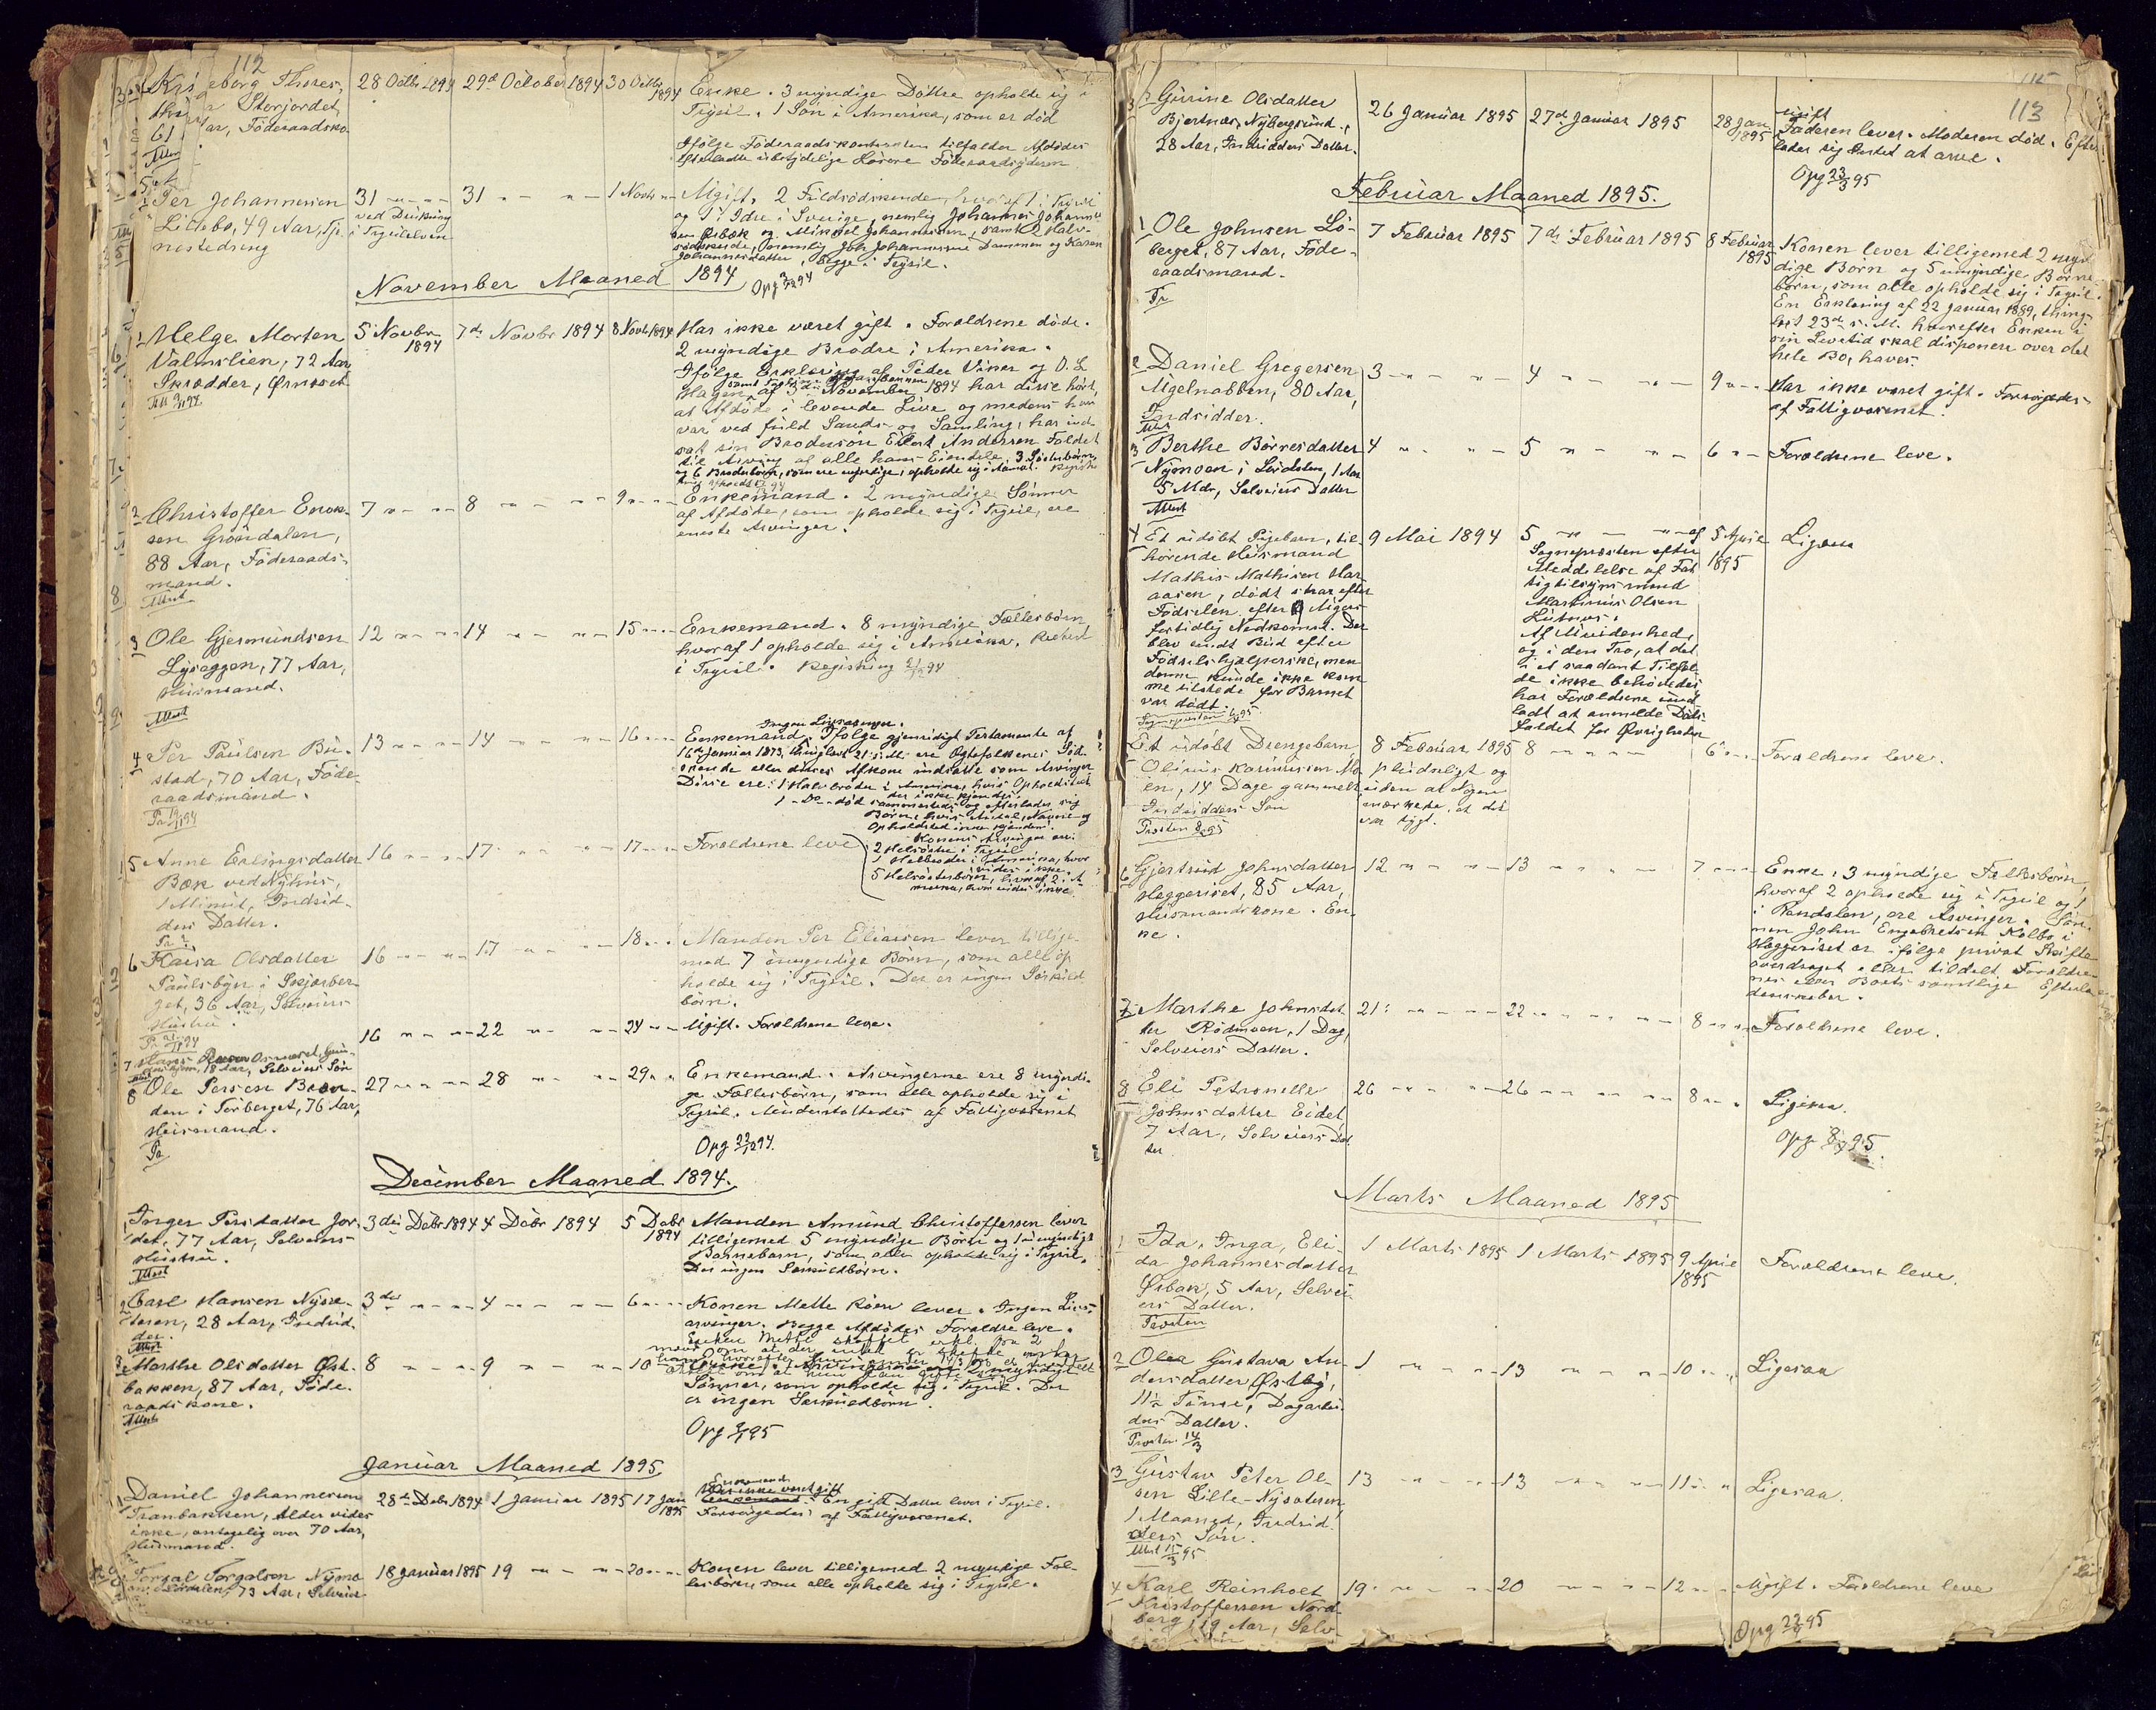 112
28 Octbr 1894 29de October 1894 30 Octbr 1894
61 Aar, Föderaadsko
Enke. 3 myndige Döttre opholde sig i
Trysil. 1 Sön i Amerika, som er död
Ifölge Föderaadskontrakten tilfalder Afdödes
Per Johannessen
Lillebo, 49 Aar, Tje-
nestedreng
31 " " 31 " " 1 Novbr "
ved Drukning
i Trysilelven
Ugift. 2 Fuldsödskende, hvoraf 1 i Trysil
og 1 i Idre i Sverige, nemlig Johannes Johannes-
sen Örbæk og Mikkel Johannessen, samt 2 Halv-
södskende, nemlig Joh. Johannessen Dammen og Karen
Johannesdatter, begge i Trysil.
November Maaned 1894
1 Helge Morten
Valmslien, 72 Aar,
Skrædder, Örnæset
5 Novbr 1894 7de Novbr 1894 8 Novbr 1894
Har ikke været gift. Forældrene döde.
2 myndige Brödre i Amerika.
Ifölge Erklæring af Peder Viner og O. L.
Hagen af 5 November 1894 har disse hört,
at Afdöde i levende Live og medens han
var ved fuld Sands og Samling, har ind
sat sin Brodersön Eilert Andersen Foldet
til Arving af alle hans Eiendele. 3 Sösterbörn
og 6 Broderbörn, som ere myndige, opholde sig i Aamot.
2 Christoffer Enok-
sen Gröndalen,
88 Aar, Föderaads-
mand.
Attest
7 " " 8 " " 9 " "
Enkemand. 2 myndige Sönner
af Afdöde, som opholde sig i Trysil, ere
eneste Arvinger.
3 Ole Gjermundsen
Lyseggen, 77 Aar,
Husmand.
Attest
12 " " 14 " " 15 " "
Enkemand. 8 myndige Fællesbörn,
hvoraf 1 opholde sig i Amerika, Resten
i Trysil. Registring 21/12 94
4 Per Paulsen Bu-
stad, 70 Aar, Föde-
raadsmand.
13 " " 14 " " 16 " "
Ingen Livsarvinger.
Enkemand. Ifölge gjensidigt Testamente af
16de Januar 1873, thinglæst 21 s. M. ere Ægtefolkenes Söd-
skende eller disses Afkom indsatte som Arvinger
Disse ere: 1 Halvbroder i Amerika, hvis Opholdssted
der ikke kjendes.
1 " Do " död sammesteds og efterlader sig
Börn, hvis Antal, Navne og
Opholdssted ikke kjendes.
Konens Arvinger ere:
2 Helsöstre i Trysil
1 Helbroder i Amerika, hvor
vides ikke.
5 Helsösterbörn, hvoraf 2 i A
merika, hvor vides ikke
5 Anne Erlingsdatter
Bæk ved Nyhus,
1 Minut, Indsid-
ders Datter.
16 " " 17 " " 17 " "
Forældrene leve
6 Kaisa Olsdatter
Paulsbyen i Skjærber-
get, 36 Aar, Selveiers
Hustru.
16 " " 17 " " 18 " "
Manden Per Eliassen lever tillige-
med 7 umyndige Börn, som alle op
holde sig i Trysil. Der er ingen Særkuld
börn.
7 Hans
18 Aar, Selveiers Sön
16 " " 22 " " 24 " "
Ugift. Forældrene leve.
8 Ole Persen Bræn-
den i Törberget, 76 Aar,
Husmand.
27 " " 28 " " 29 " "
Enkemand. Arvingerne ere 8 myndi-
ge Fællesbörn, som alle opholde sig i
Trysil. Understöttedes af Fattigvæsenet
December Maaned 1894.
1 Inger Persdatter Jor-
det, 77 Aar, Selveiers
Hustru.
Attest
3die Debr 1894 4 Debr 1894 5 Debr 1894
Manden Amund Christoffersen lever
tilligemed 5 myndige Börn og 1 umyndigt
Barnebarn, som alle opholde sig i Trysil.
Der ingen Særkuldbörn.
2 Carl Hansen Nysæ-
teren, 28 Aar, Indsid-
der.
Attest
3die " " 4 " " 6 " "
Konen Mette Röen lever. Ingen Livs-
arvinger. Begge Afdödes Forældre leve.
3 Marthe Olsdatter Öst-
bakken, 87 Aar, Föde-
raadskone.
Attest
8 " " 9 " " 10
Sönner, som opholde sig i Trysil. Der
er ingen Særkuldbörn.
Januar Maaned 1895
1 Daniel Johannessen
Tranbakken, Alder vides
ikke, antagelig over 70 Aar,
Husmand.
28de Debr 1894 1 Januar 1895 17 Jan 1895
Enkemand
Har ikke været gift
Enkemand. En gift Datter lever i Trysil.
Forsörgedes af Fattigvæsenet.
Torgal Torgalsen Nymo
73 Aar, Selveier
18 Januar 1895 19 " " 20 " "
Konen lever tilligemed 2 myndige Fæl-
lesbörn, som alle opholde sig i Trysil.
113
3 Gurine Olsdatter
Bjertnæs, Nybergsund,
28 Aar, Indsidders Datter.
26 Januar 1895 27de Januar 1895 28 Jan 1895
Ugift
Faderen lever. Moderen död. Efter
lader sig Intet at arve.
Opg 23/3 95
Februar Maaned 1895.
1 Ole Johnsen Lö-
berget, 87 Aar, Föde-
raadsmand.
7 Februar 1895 7de Februar 1895 8 Februar 1895
Konen lever tilligemed 2 myn
dige Börn og 5 umyndige Börne-
börn, som alle opholde sig i Trysil.
En Erklæring af 22 Januar 1889, thing-
læst 23de s. M. hvorefter Enken i
sin Levetid skal disponere over det
hele Bo, haves.
2 Daniel Gregersen
Ugelnabben, 80 Aar,
Indsidder.
3 " " 4 " " 9 " "
Har ikke været gift. Forsörgedes
af Fattigvæsenet.
3 Berthe Börresdatter
Nymoen i Lördalen, 1 Aar
5 Mdr, Selveiers Datter
Attest
4 " " 5 " " 6 " "
Forældrene leve.
4 Et udöbt Pigebarn, til-
hörende Husmand
Mathis Mathisen Har-
aasen, dödt snar efter
Födselen efter
fortidlig Nedkomst. Der
blev sendt Bud efter
Födselshjælperske, men
denne kunde ikke kom
me tilstede för Barnet
var dödt.
9 Mai 1894
5 " " af
Sognepræsten efter
Meddelelse af Fat
tigtilsynsmand
Martinus Olsen
Lutnes.
Af Uvidenhed,
og i den Tro, at det
i et saadant Tilfæl
de ikke behövedes
har Forældrene und
ladt at anmelde Döds-
faldet for Övrigheden
5 April 1895
Ligesaa
Et udöbt Drengebarn
Olinus Karinusen Mo
en, 14 Dage gammelt
Indsidders Sön
8 Februar 1895
pludseligt og
uden at Nogen
mærkede, at det
var sygt.
8 " " 6 " "
Forældrene leve.
6 Gjertrud Johnsdatter
Haggeriset, 85 Aar,
Husmandskone. En-
ke.
12 " " 13 " " 7 " "
Enke, 3 myndige Fællesbörn
hvoraf 2 opholde sig i Trysil og 1
i Rendalen, ere Arvinger. Sön-
nen John Engebretsen Kolbo i
Haggeriset er ifölge privat Skifte
overdraget eller tildelt Forældre-
nes eller Boets samtlige Efterla
denskaber.
7 Marthe Johnsdat
ter Rödmoen, 1 Dag,
Selveiers Datter.
21 " " 22 " " 8 " "
Forældrene leve.
8 Eli Petronelle
Johnsdatter Eidet
7 Aar, Selveiers Dat
ter
26 " " 26 " " 8 " "
Ligesaa.
Marts Maaned 1895
1 Ida, Inga, Eli-
da Johannesdatter
Örbæk, 5 Aar, Selvei-
ers Datter.
Provsten
1 Marts 1895 1 Marts 1895 9 April 1895
Forældrene leve.
2 Olea Gustava An-
dersdatter Östby,
11½ Time, Dagarbei-
ders Datter.
1 " " 13 " " 10 " "
Ligesaa
3 Gustav Peter Ol-
sen Lille-Nysæteren
1 Maaned, Indsid-
ders Sön.
13 " " 13 " " 11 " "
Ligesaa.
4 Karl Reinholt
Kristoffersen Nord-
berg, 19 Aar, Selv-
19 " " 20 " " 12 " "
Ugift. Forældrene leve